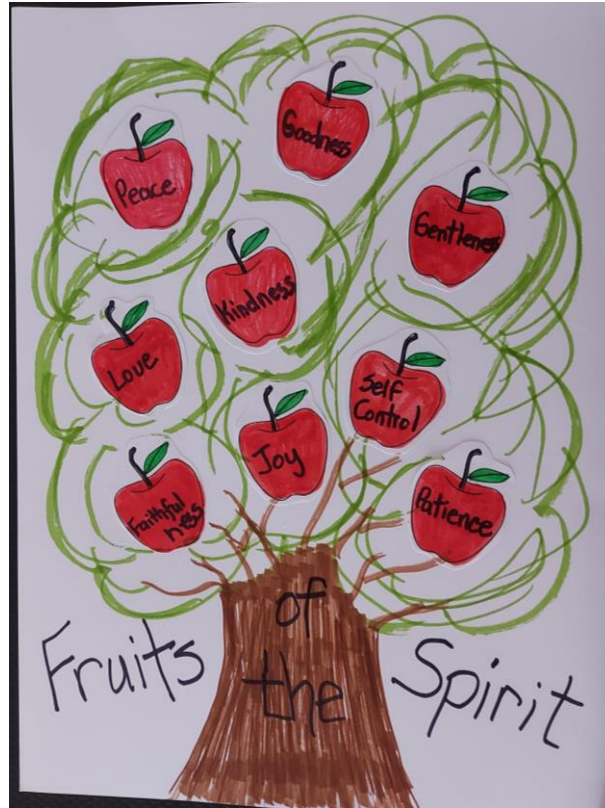 Goodness
Peace
Gentleness
Kindness
Love
Self
Control
Joy
Faithful
ness
Patience
Fruits of the Spirit